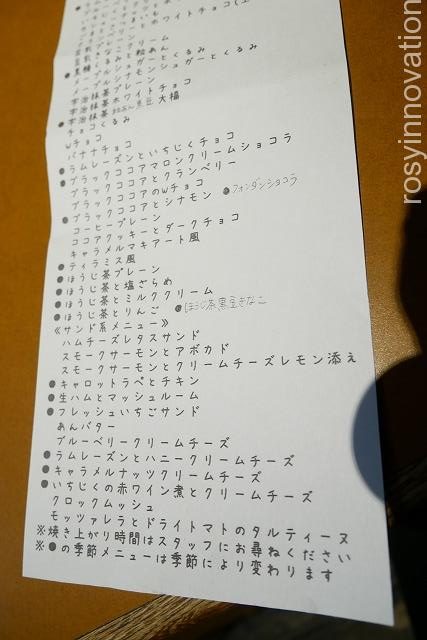 メープルシュガーとくるみ
メープルシナモンシュガーとくるみ
宇治抹茶プレーン
宇治抹茶ホワイトチョコ
宇治抹茶 大福
●チョコくるみ
Wチョコ
バナナチョコ
●ラムレーズンといちじくチョコ
●ブラックココアマロンクリームショコラ
ブラックココアとクランベリー
ブラックココアのWチョコ
●ブラックココアとシナモン ●フォンダンショコラ
コーヒープレーン
ココアクッキーとダークチョコ
キャラメルマキアート風
●ティラミス風
●ほうじ茶プレーン
●ほうじ茶と塩ざらめ
●ほうじ茶とミルククリーム
●ほうじ茶とりんご ●ほうじ茶黒豆きなこ
《サンド系メニュー》
ハムチーズレタスサンド
スモークサーモンとアボカド
スモークサーモンとクリームチーズレモン添え
●キャロットラペとチキン
●生ハムとマッシュルーム
●フレッシュいちごサンド
あんバター
ブルーベリークリームチーズ
●ラムレーズンとハニークリームチーズ
●キャラメルナッツクリームチーズ
●いちじくの赤ワイン煮とクリームチーズ
クロックムッシュ
モッツァレラとドライトマトのタルティーヌ
※焼き上がり時間はスタッフにお尋ねください
※●の季節メニューは季節により変わります
rosyinnovation